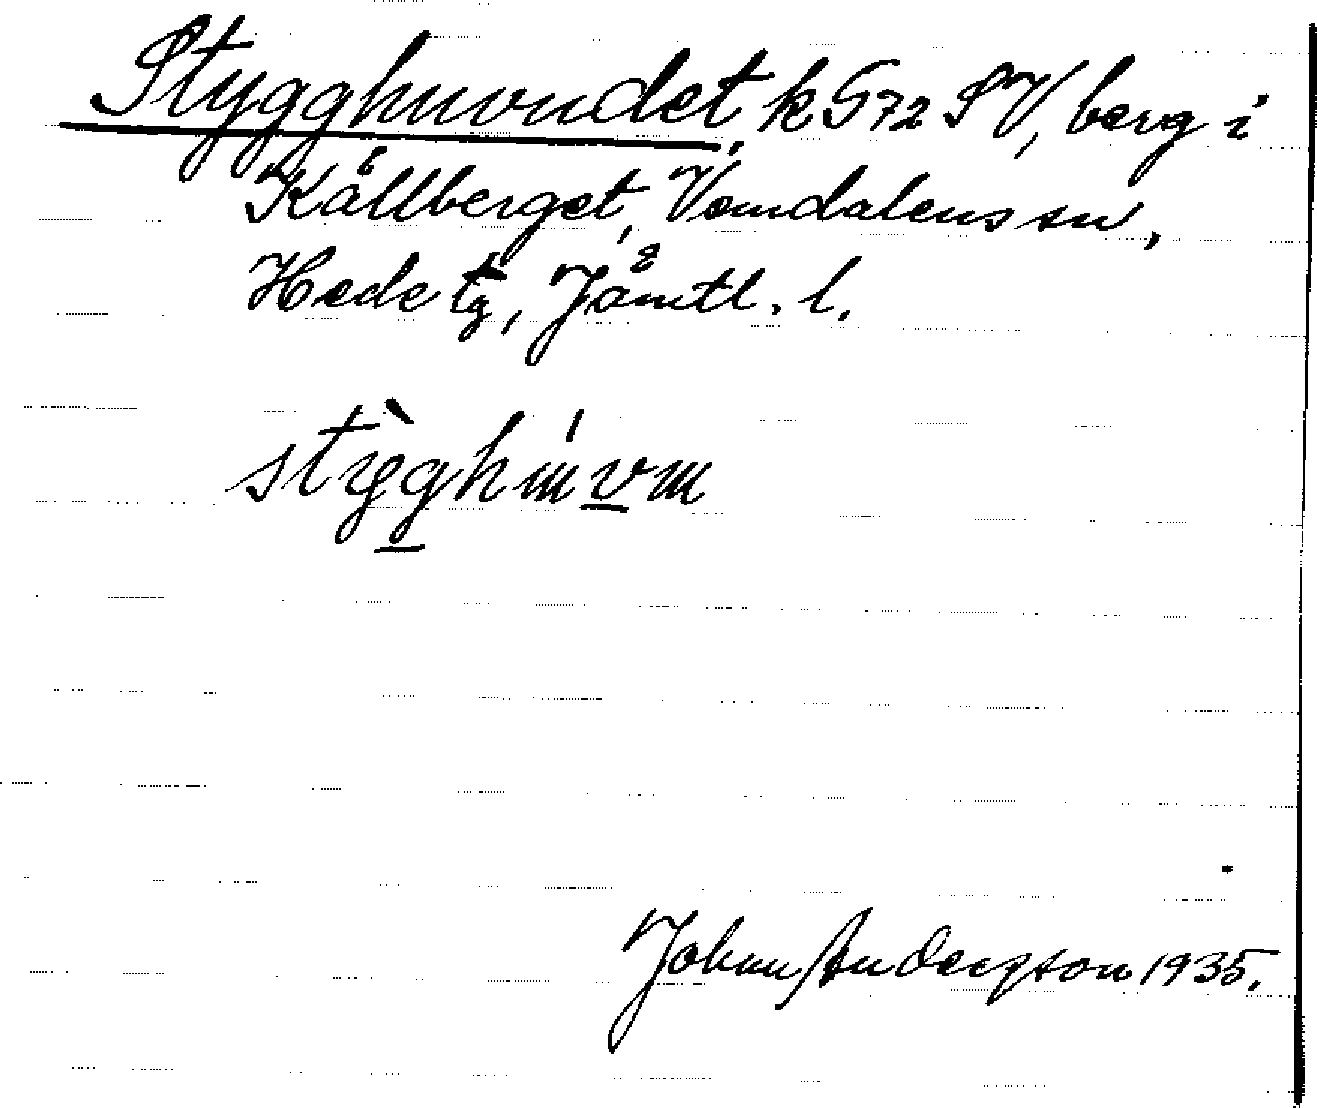 Stygghuvudet, k G72 SV, berg i
Kållberget, Vemdalens sn,
Hede tg, Jämtl. l.
Johan Anderson 1935.